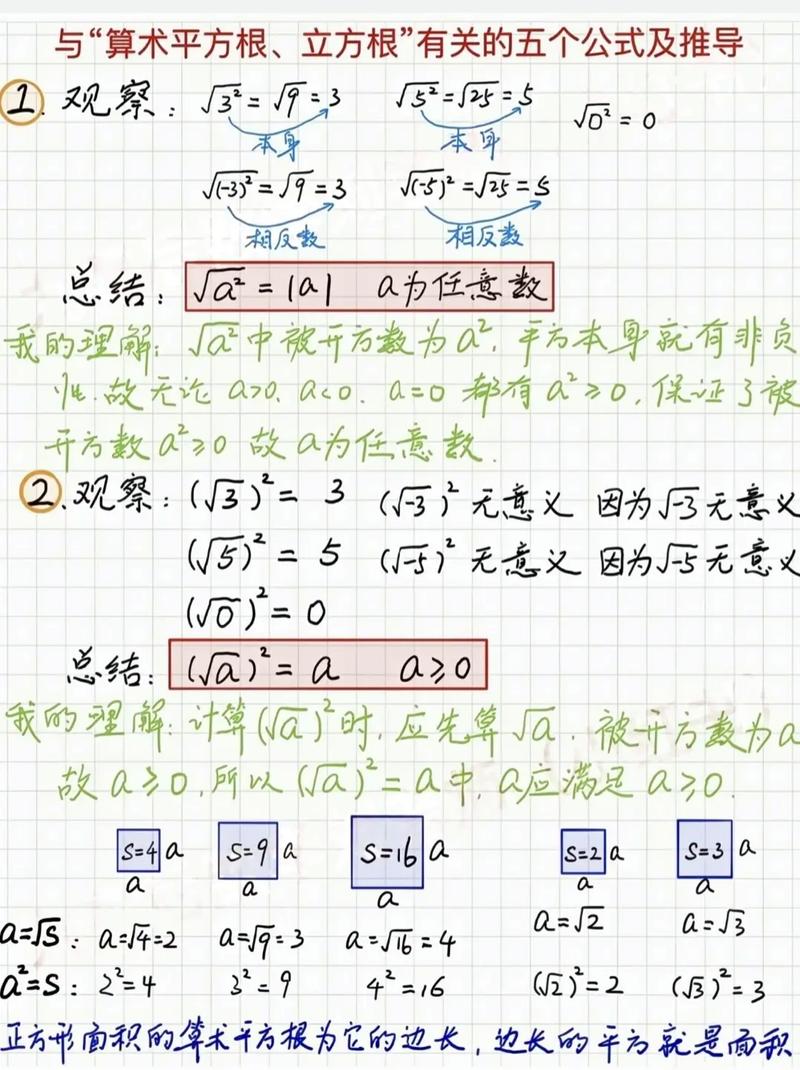 与“算术平方根、立方根”有关的五个公式及推导
1. 观察: √3² = √9 = 3 √5² = √25 = 5 √0² = 0
本身 本身
√(-3)² = √9 = 3 √(-5)² = √25 = 5
相反数 相反数
总结: √a² = |a| a为任意数
我的理解: √a²中被开方数为a², 平方本身就有非负
性.故无论 a>0. a<0. a=0 都有 a²≥0, 保证了被
开方数 a²≥0 故 a为任意数.
2.观察: (√3)² = 3 (√-3)² 无意义 因为√-3无意义
(√5)² = 5 (√-5)² 无意义 因为√-5无意义
(√0)² = 0
总结: (√a)² = a a≥0
我的理解: 计算(√a)²时, 应先算√a. 被开方数为a
故 a≥0, 所以 (√a)² = a中, a应满足 a≥0.
S=4 a S=9 a S=16 a S=2 a S=3 a
a a a a a
a=√S: a=√4=2 a=√9=3 a=√16=4 a=√2 a=√3
a²=S: 2²=4 3²=9 4²=16 (√2)²=2 (√3)²=3
正方形面积的算术平方根为它的边长, 边长的平方就是面积